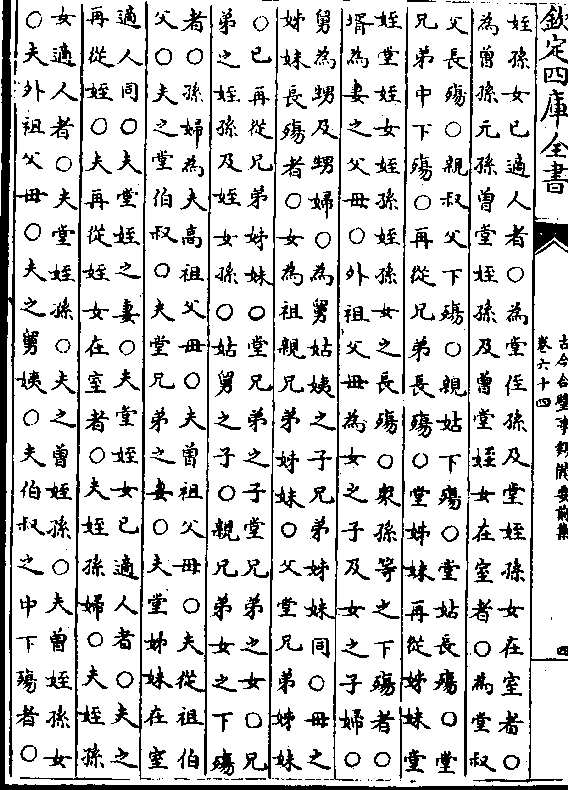 欽定四庫全書
古今合璧事類備要前集
卷六十四
四
姪孫女已適人者○為堂侄孫及堂姪孫女在室者○
為曾孫元孫曾堂姪孫及曾堂姪女在室者○為堂叔
父長殤○親叔父下殤○親姑下殤○堂姑長殤○堂
兄弟中下殤○再從兄弟長殤○堂姊妹再從姊妹堂
姪堂姪女姪孫姪孫女之長殤○衆孫等之下殤者○
壻為妻之父母○外祖父母為女之子及女之子婦○
舅為甥及甥婦○為舅姑姨之子兄弟姊妹同○母之
姊妹長殤者○女為祖親兄弟姊妹○父堂兄弟姊妹
○已再從兄弟姊妹○堂兄弟之子堂兄弟之女○兄
弟之姪孫及姪女孫○姑舅之子○親兄弟女之下殤
者○孫婦為夫高祖父母○夫曾祖父母○夫從祖伯
父○夫之堂伯叔○夫堂兄弟之妻○夫堂姊妹在室
適人同○夫堂姪之妻○夫堂姪女已適人者○夫之
再從姪○夫再從姪女在室者○夫姪孫婦○夫姪孫
女適人者○夫堂姪孫○夫之曾姪孫○夫曾姪孫女
○夫外祖父母○夫之舅姨○夫伯叔之中下殤者○